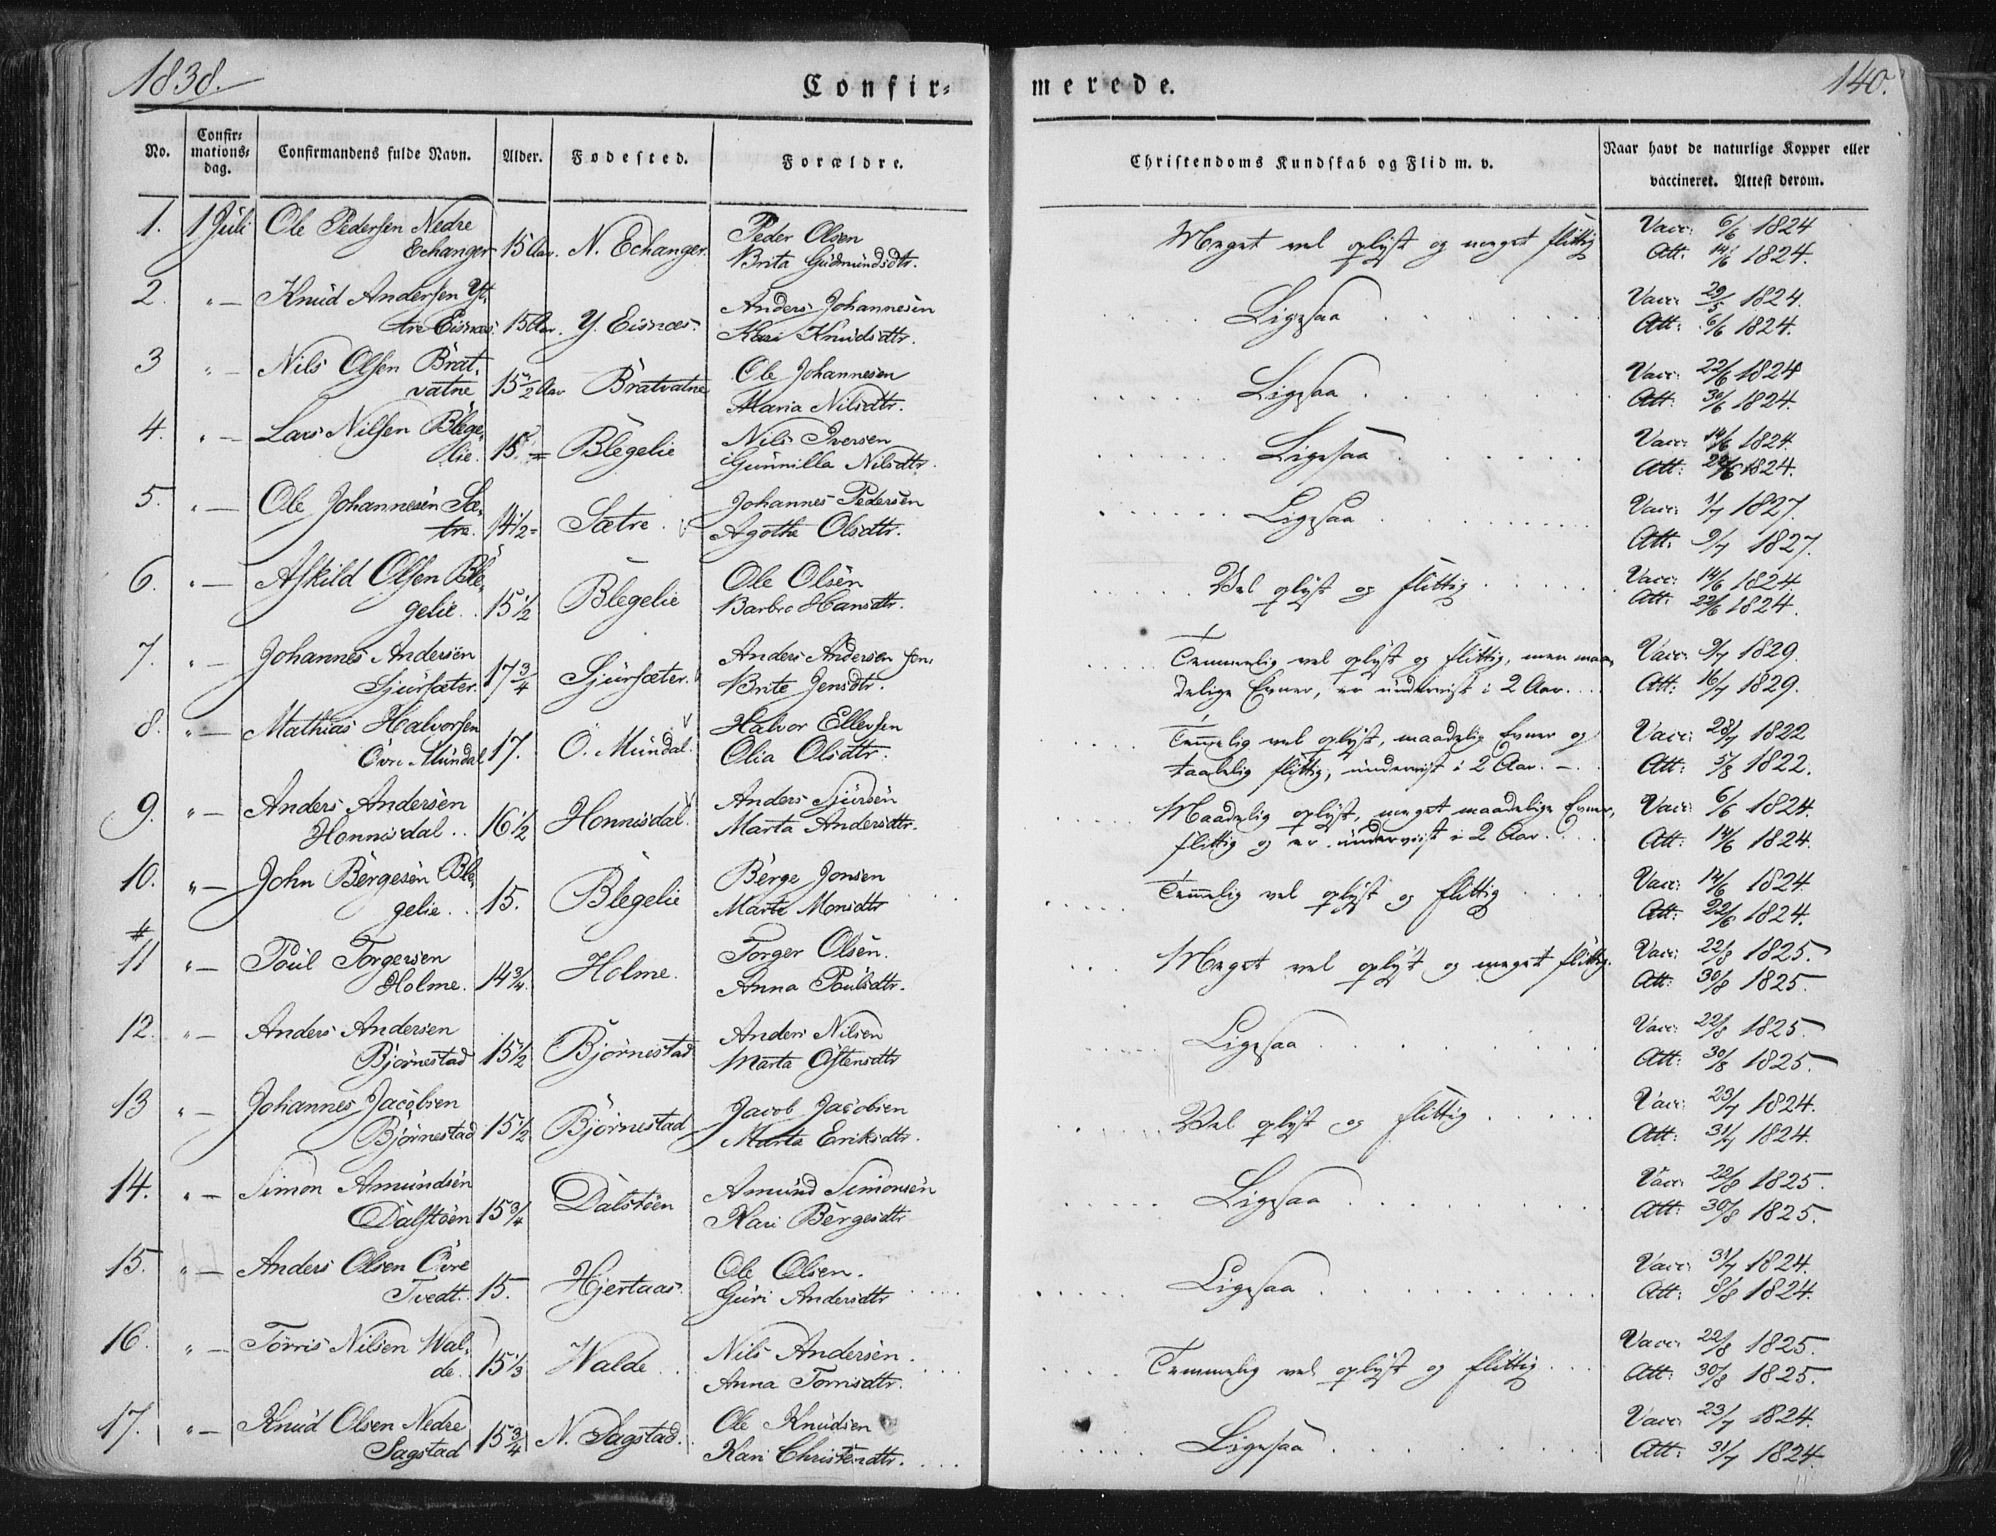 1838.
Confir=
merede.
140.
No.
Confir=
mations=
dag.
Confirmandens fulde Navn.
Alder.
Fødested.
Forældre.
Christendoms Kundskab og Flid m. v.
Naar havt de naturlige Kopper eller
vaccineret. Attest derom.
1. 1 Juli Ole Pedersen Nedre
Echanger 15 Aar. N. Echanger. Peder Olsen
Brita Gudmundsdtr.
Meget vel oplyst og meget flittig
Vacc: 6/6 1824
Att: 14/6 1824.
2. " — Knud Andersen Yt,
tre Eisnæs. 15 Aar. Y. Eisnæs. Anders Johannesen
Kari Knudsdtr.
Ligesaa
Vacc: 29/5 1824.
Att: 6/6 1824.
3 " — Nils Olsen Brat,
vatne 15 1/2 Aar Bratvatne Ole Johannesen
Maria Nilsdtr.
Ligesaa
Vacc: 22/6 1824
Att: 30/6 1824.
4. " — Lars Nilsen Blege,
lie. 15. = Blegelie Nils Iversen
Gunnilla Nilsdtr.
Ligesaa
Vacc: 14/6 1824.
Att: 22/6 1824.
5. " — Ole Johannesen Sæ,
tre. 14 1/2 = Sætre. Johannes Pedersen
Agotha Olsdtr.
Ligesaa
Vacc: 1/7 1827.
Att: 9/7 1827.
6. " — Askild Olsen Ble,
gelie. 15 1/2 Blegelie Ole Olsen
Barbro Hansdtr.
Vel oplyst og flittig
Vacc: 14/6 1824.
Att: 22/6 1824.
7. " — Johannes Andersen
Sjursæter. 17 3/4 Sjursæter. Anders Andersen sen,
Brite Jensdtr.
Temmelig vel oplyst og flittig, men maa,
delige Evner, er underviist i 2 Aar.
Vacc: 9/7 1829.
Att: 16/7 1829.
8. " — Mathias Halvorsen
Övre Mundal 17. Ö. Mundal. Halvor Ellevsen
Olia Olsdtr.
Temelig vel oplyst, maadelig Evner og
taalelig flittig, underviist i 2 Aar.
Vacc: 28/7 1822
Att: 5/8 1822.
9. " — Anders Andersen
Honnisdal. 16 1/2 Honnisdal. Anders Sjursen
Marta Andersdtr.
Maadelig oplyst, meget maadelige Evner,
flittig og er underviist i 2 Aar.
Vacc: 6/6 1824.
Att: 14/6 1824.
10. " — John Bergesen Ble,
gelie. 15. Blegelie Berge Jonsen
Marta Monsdtr
Temelig vel oplyst og flittig
Vacc: 14/6 1824.
Att: 22/6 1824.
#
11 " — Poul Torgersen
Holme. 14 3/4. Holme. Torger Olsen.
Anna Poulsdtr.
Meget vel oplyst og meget flittig.
Vacc: 22/8 1825.
Att: 30/8 1825.
12. " — Anders Andersen
Bjørnestad 15 1/2 Bjørnestad Anders Nilsen
Marta Ostensdtr
Ligesaa
Vacc: 22/8 1825.
Att: 30/8 1825.
13 " — Johannes Jacobsen
Bjørnestad 15 1/2 Bjørnestad Jacob Jacobsen
Marta Eriksdtr.
Vel oplyst og flittig
Vacc: 23/7 1824.
Att: 31/7 1824.
14. " — Simon Amundsen
Dalstöen 15 3/4 Dalstöen Amund Simonsen
Kari Bergesdtr
Ligesaa
Vacc: 22/8 1825.
Att: 30/8 1825.
15. " — Anders Olsen Övre
Tvedt. 15. Hjertaas. Ole Olsen.
Guri Andersdtr
Ligesaa
Vacc: 31/7 1824.
Att: 8/8 1824.
16. " — Törris Nilsen Wal,
de. 15 1/3 Walde Nils Andersen.
Anna Torrisdtr.
Temmelig vel oplyst og flittig
Vacc: 22/8 1825.
Att: 30/8 1825.
17. " — Knud Olsen Nedre
Sagstad 15 3/4 N. Sagstad. Ole Knudsen
Kari Christensdtr.
Ligesaa
Vacc: 23/7 1824.
Att: 31/7 1824.